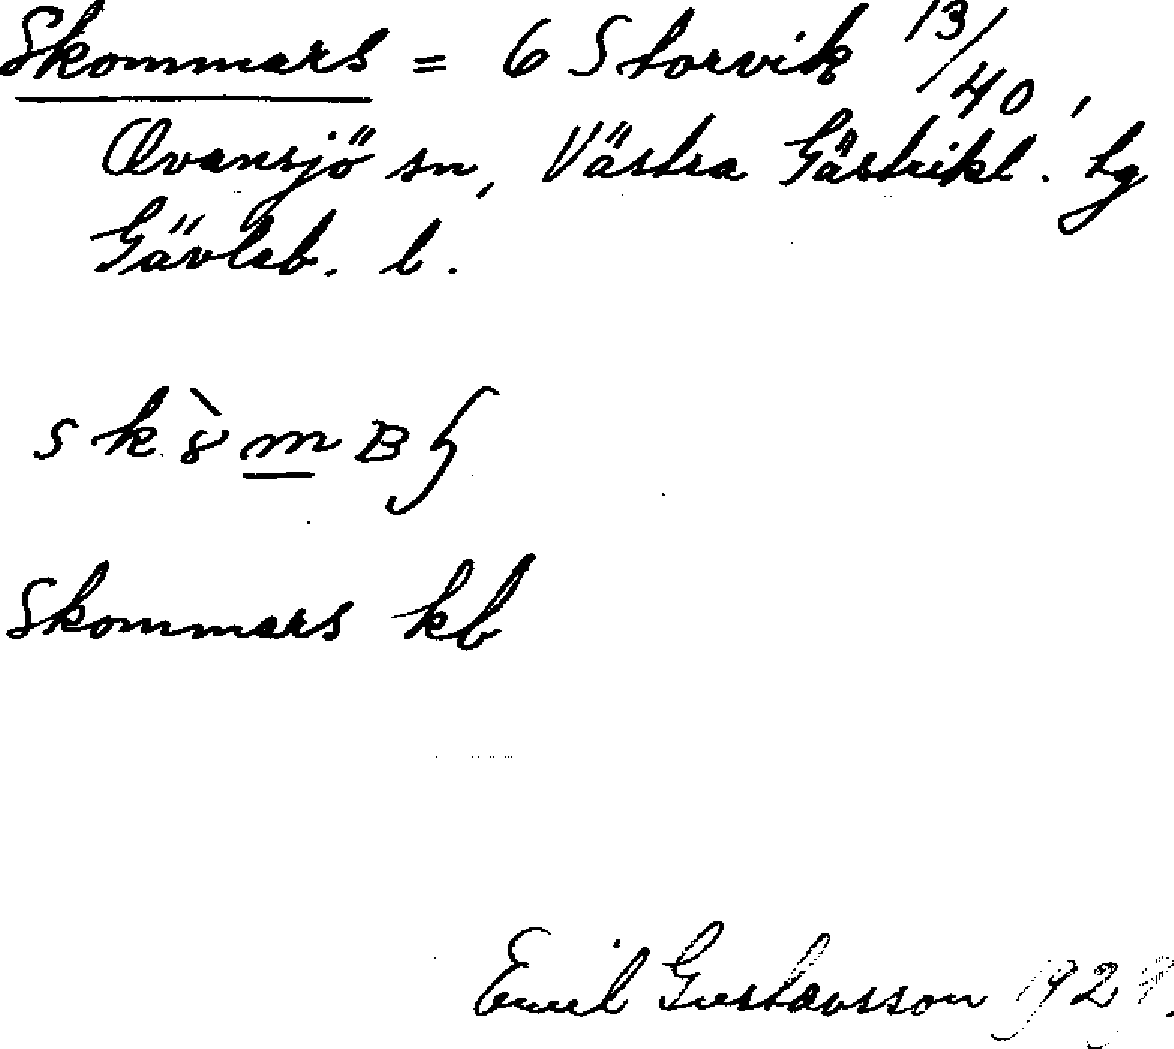 Skommars = 6 Storvik 13/40,
Ovansjö sn, Västra Gästrikl. tg
Gävleb. l.
Skommars kb
Emil Gustavsson